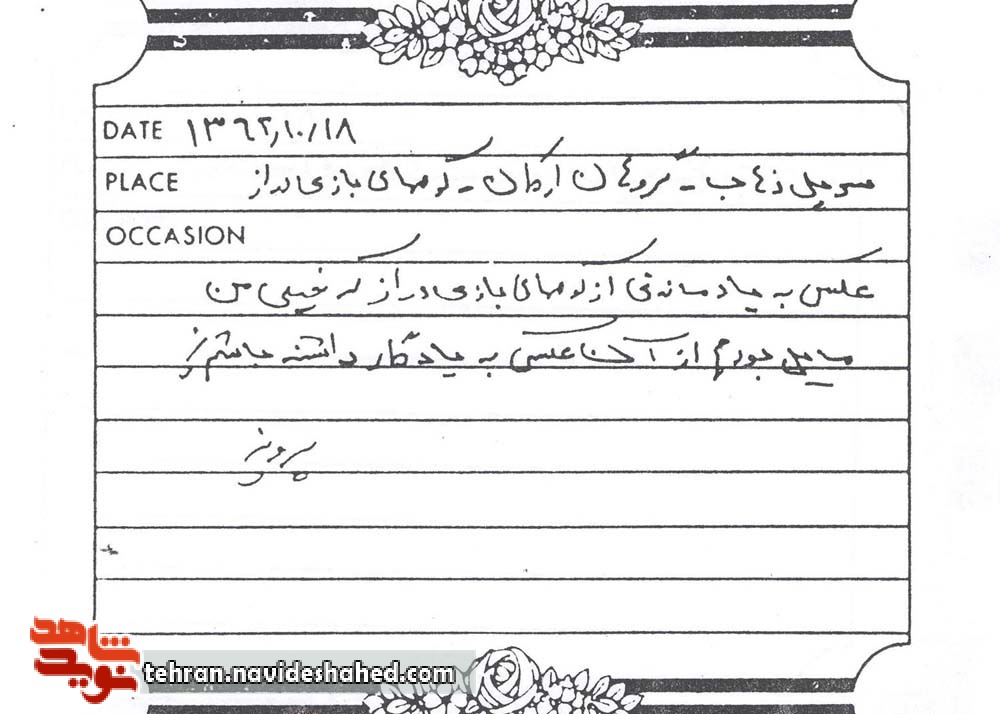 DATE ۱۳۶۲/۱۰/۱۸
PLACE سرپل ذهاب - گروهان ارکان - کوههای بازی دراز
OCCASION
عکس به یاد ماندنی از کوههای بازی دراز که خیلی من
مایل بودم از آن عکسی به یادگار داشته باشم
پرویز
شاهد
نوید
tehran.navideshahed.com